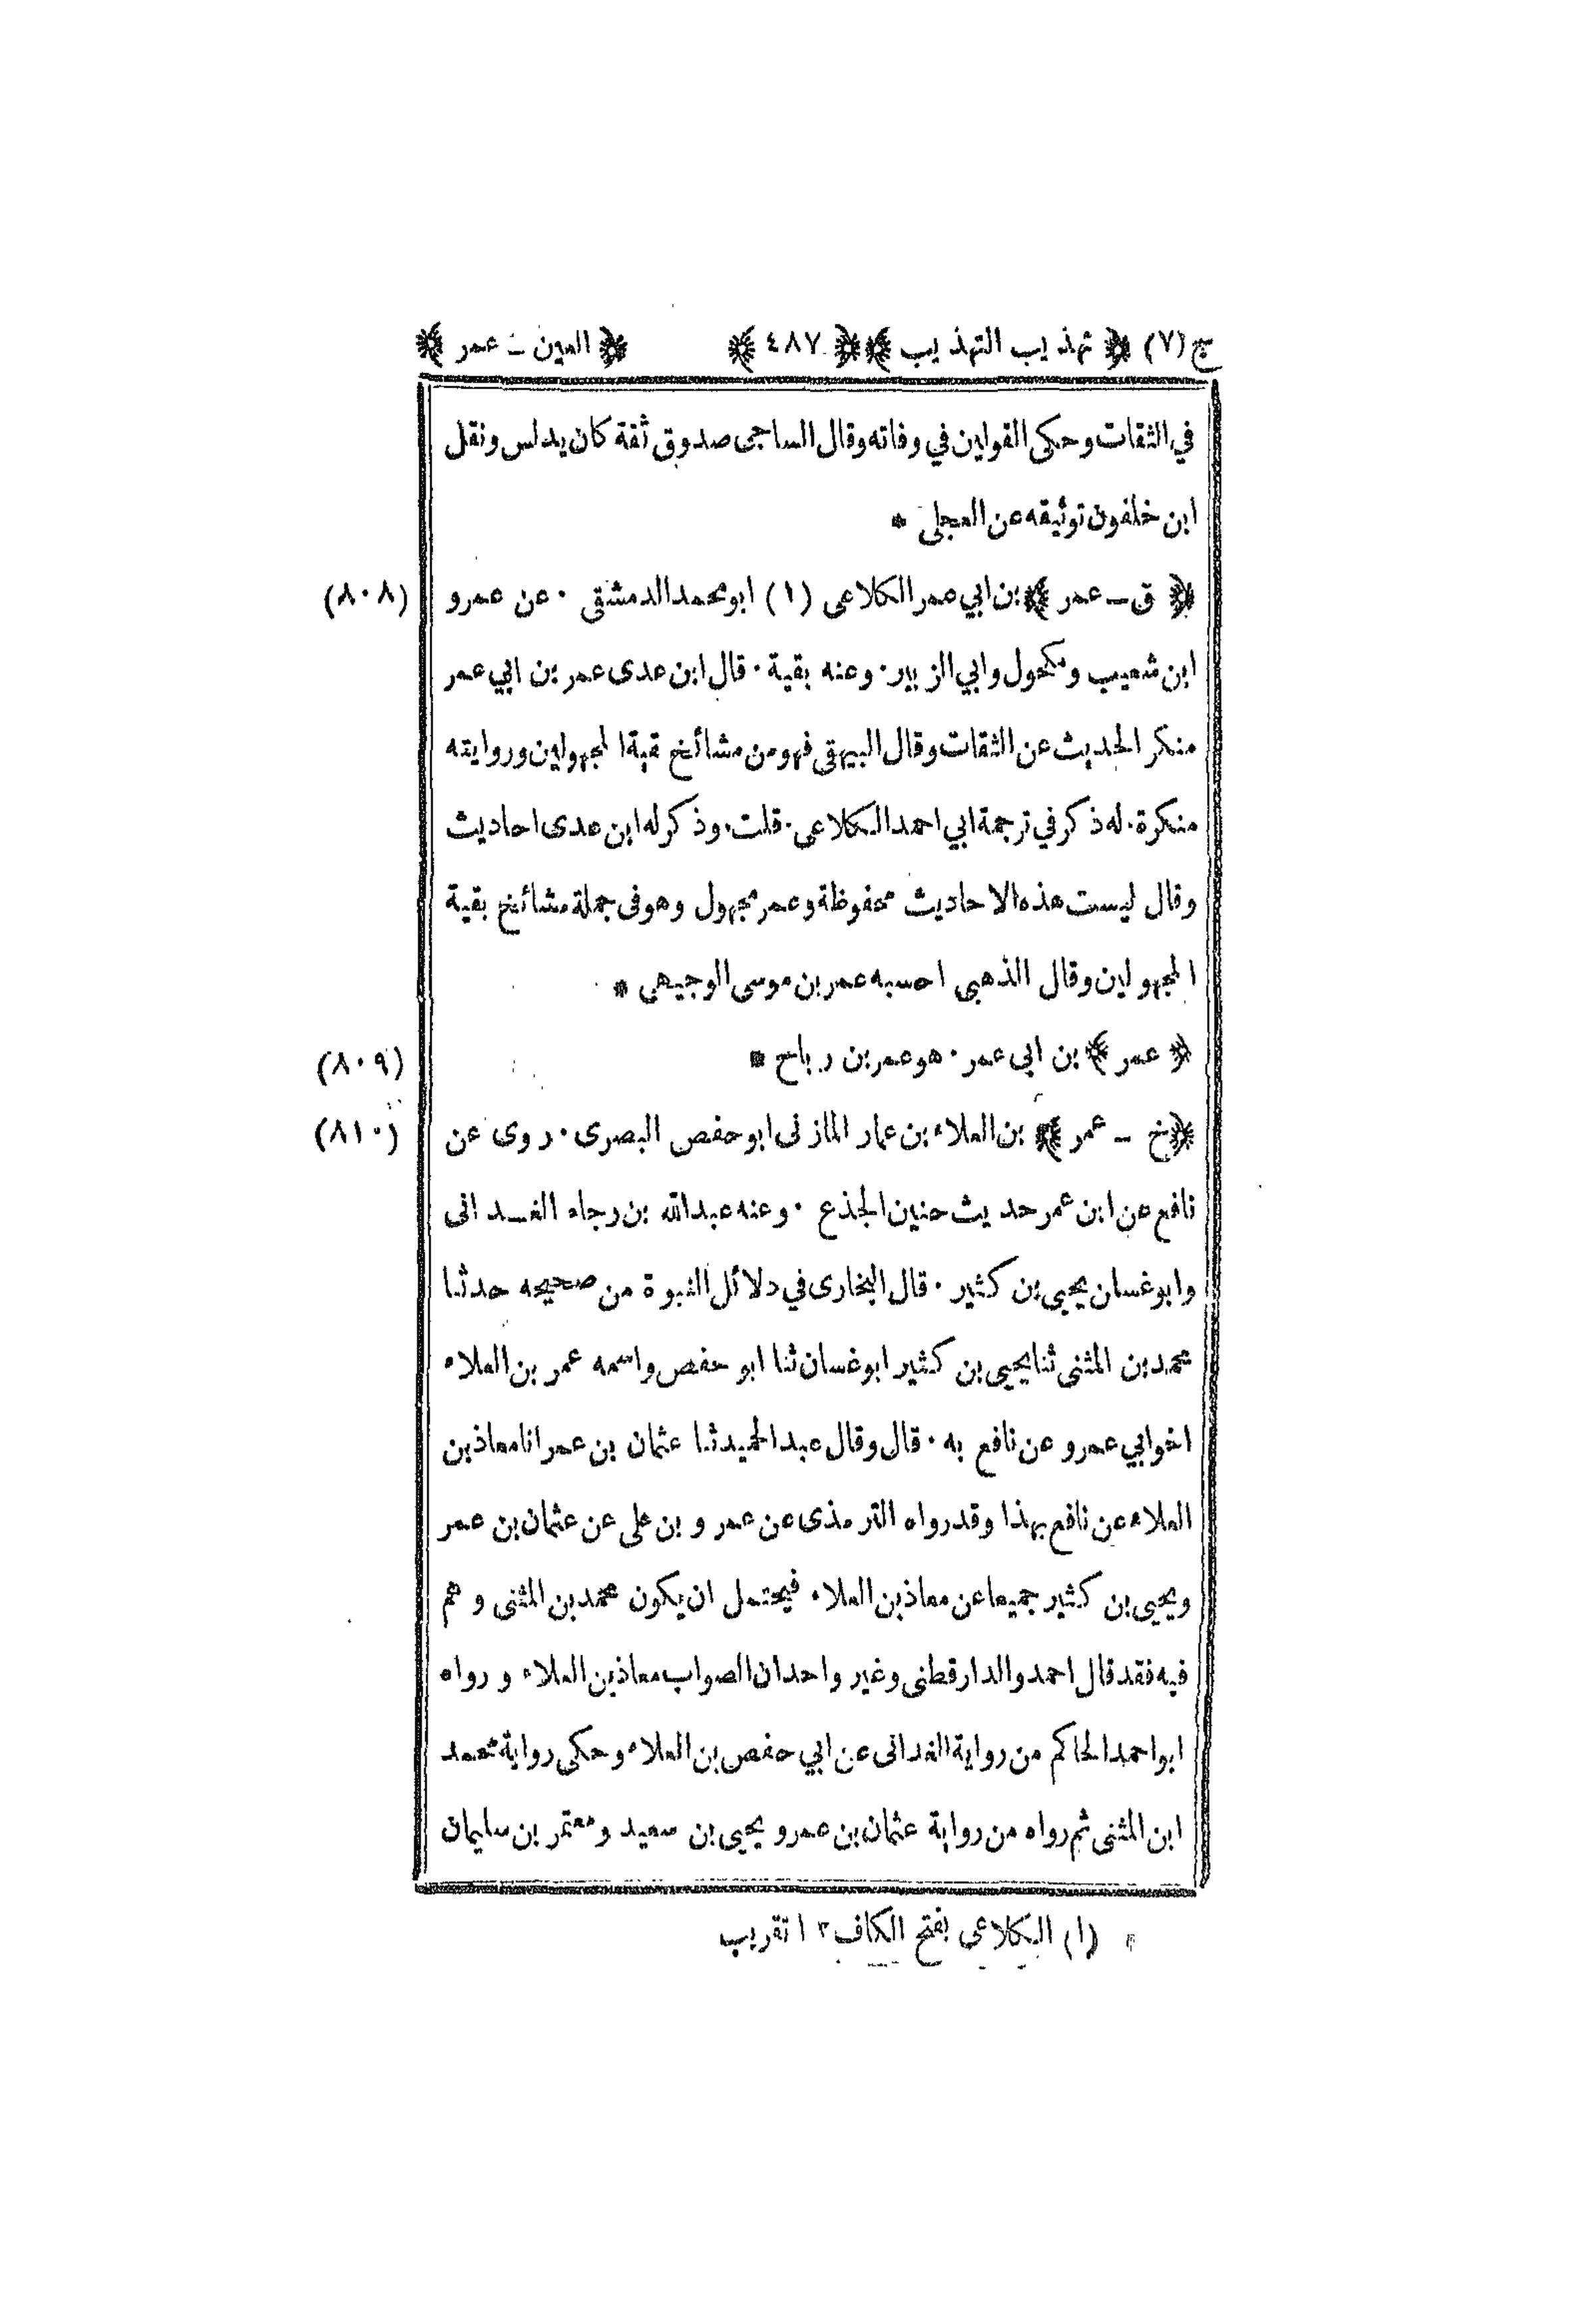 ج (٧) ﴿ تهذيب التهذيب ﴾ ﴿ ٤٨٧ ﴾ ﴿ العين - عمر ﴾
في الثقات وحكى القولين في وفاته وقال الساجى صدوق ثقة كان يدلس ونقل
ابن خلفون توثيقه عن العجلى *
(٨٠٨) ﴿ ق - عمر ﴾ بن ابي عمر الكلاعى (١) ابو محمد الدمشقى ٠ عن عمرو
ابن شعيب ومكحول وابي الزبير ٠ وعنه بقية ٠ قال ابن عدى عمر بن ابي عمر
منكر الحديث عن الثقات وقال البيهقى فهو من مشائخ بقية المجهولين وروايته
منكرة ٠ له ذكر في ترجمة ابي احمد الكلاعى ٠ قلت ٠ وذكر له ابن عدى احاديث
وقال ليست هذه الاحاديث محفوظة وعمر مجهول وهو فى جملة مشائخ بقية
المجهولين وقال الذهبى احسبه عمر بن موسى الوجيهى *
(٨٠٩) ﴿ عمر ﴾ بن ابى عمر ٠ هو عمر بن رباح *
(٨١٠) ﴿ خ - عمر ﴾ بن العلاء بن عمار المازنى ابو حفص البصرى ٠ روى عن
نافع عن ابن عمر حديث حنين الجذع ٠ وعنه عبد الله بن رجاء الغدانى
وابو غسان يحيى بن كثير ٠ قال البخارى في دلائل النبوة من صحيحه حدثنا
محمد بن المثنى ثنا يحيى بن كثير ابو غسان ثنا ابو حفص واسمه عمر بن العلاء
اخو ابي عمرو عن نافع به ٠ قال وقال عبد الحميد ثنا عثمان بن عمر انا معاذ بن
العلاء عن نافع بهذا وقد رواه الترمذى عن عمرو بن على عن عثمان بن عمر
ويحيى بن كثير جميعا عن معاذ بن العلاء فيحتمل ان يكون محمد بن المثنى وهم
فيه فقد قال احمد والدارقطنى وغير واحد ان الصواب معاذ بن العلاء ورواه
ابو احمد الحاكم من رواية الغدانى عن ابي حفص بن العلاء وحكى رواية محمد
ابن المثنى ثم رواه من رواية عثمان بن عمر و يحيى بن سعيد ومعتمر بن سليمان
(١) الكلاعى بفتح الكاف ١٢ تقريب